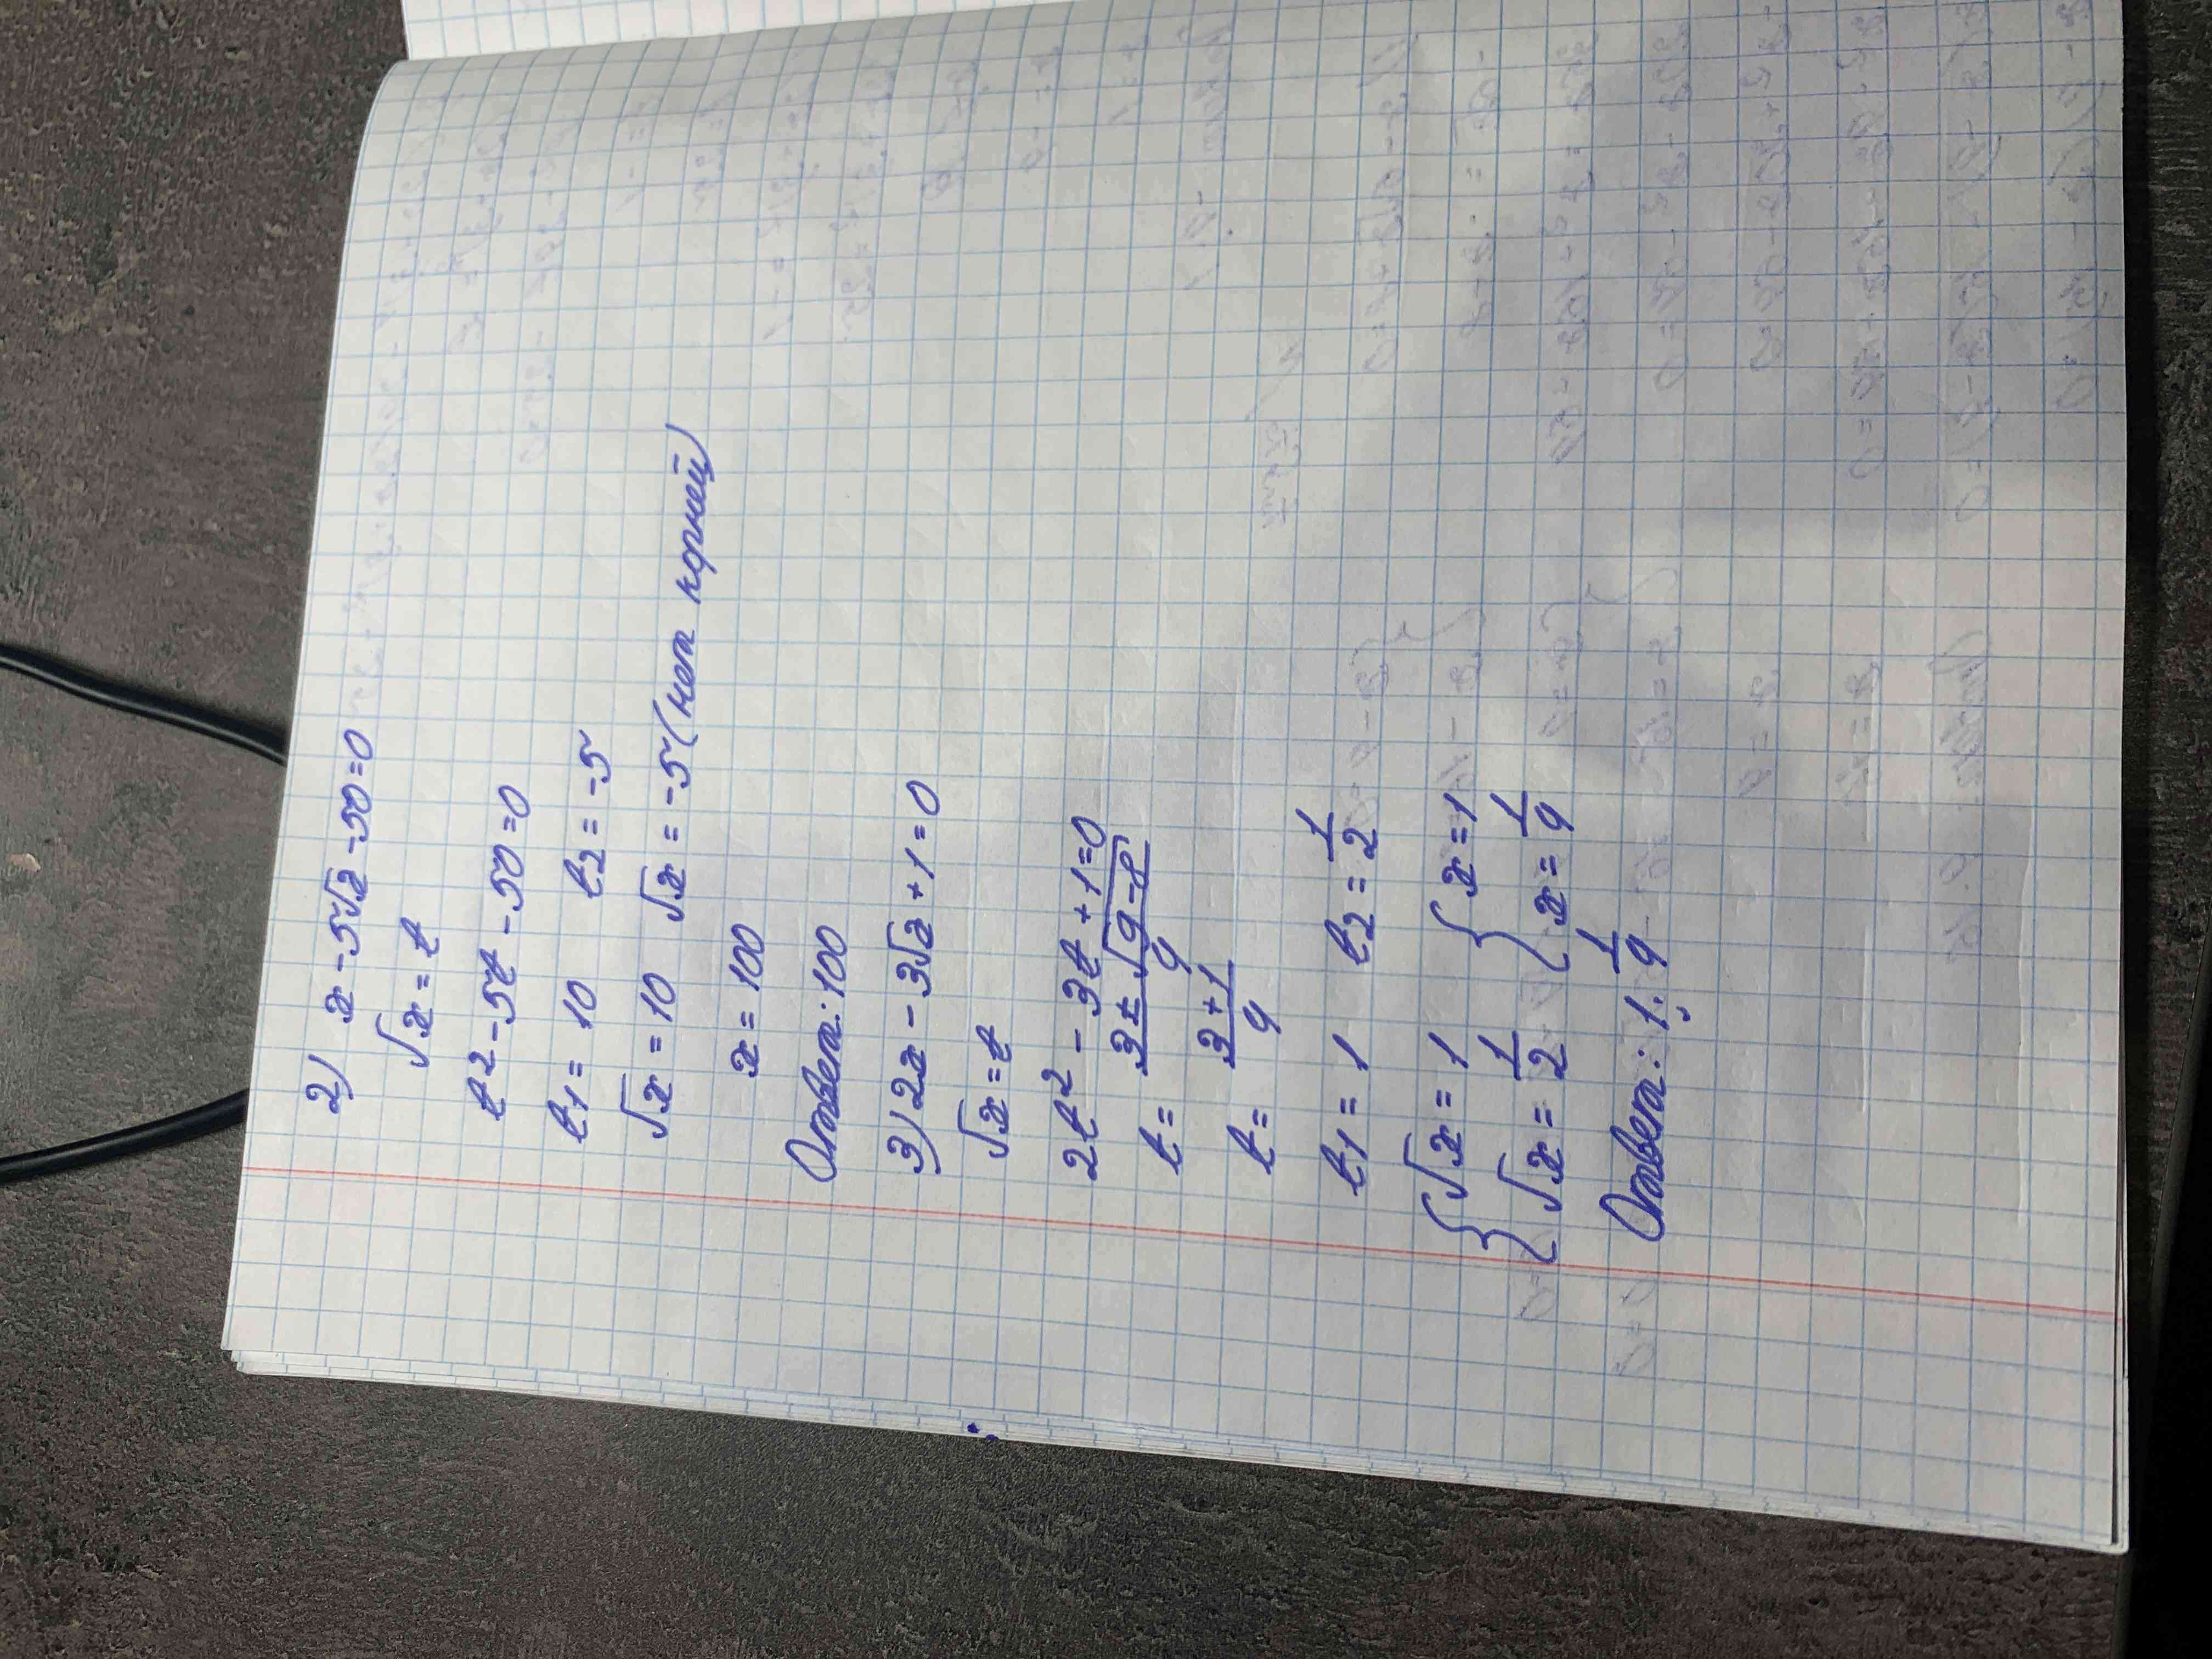 2) x - 5√x - 50 = 0
√x = t
t² - 5t - 50 = 0
t₁ = 10 t₂ = -5
√x = 10 √x = -5 (нет корней)
x = 100
Ответ: 100
3) 2x - 3√x + 1 = 0
√x = t
2t² - 3t + 1 = 0
t = (3 ± √(9 - 8))/4
t = (3 + 1)/4
t₁ = 1 t₂ = 1/2
{ √x = 1 { x = 1
{ √x = 1/2 { x = 1/4
Ответ: 1; 1/4